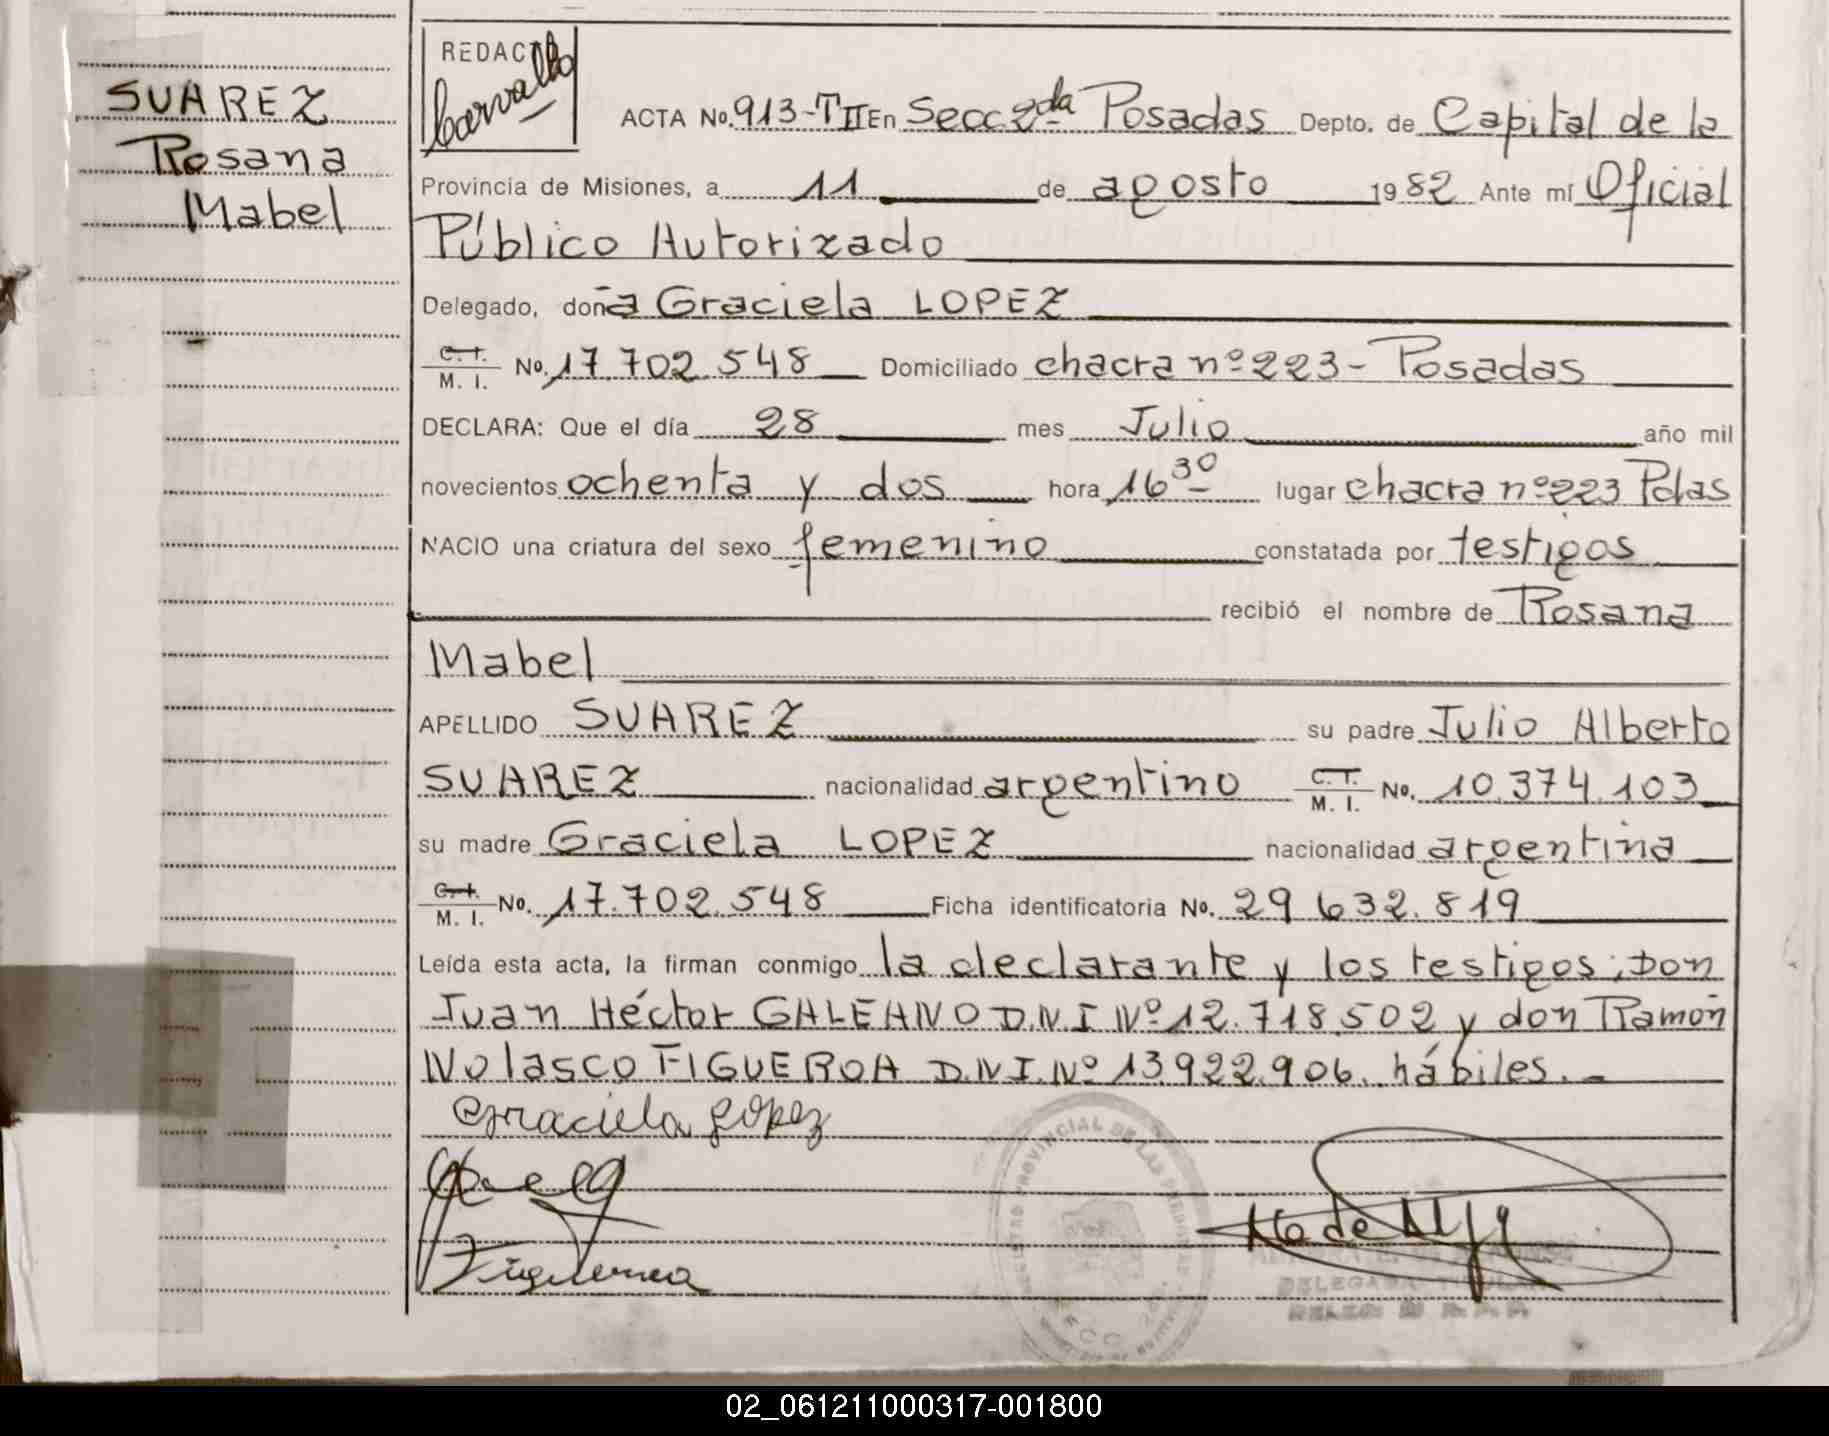 SUAREZ
Rosana
Mabel
REDACTO
Carvallo
ACTA No. 913-TII En Secc 2da Posadas Depto. de Capital de la
Provincia de Misiones, a 11 de agosto 1982 Ante mí Oficial
Público Autorizado
Delegado, doña Graciela LOPEZ
C.I. M. I. No. 17 702.548 Domiciliado chacra nº 223 - Posadas
DECLARA: Que el día 28 mes Julio año mil
novecientos ochenta y dos hora 16 30 lugar chacra nº 223 Pdas
NACIO una criatura del sexo femenino constatada por testigos
recibió el nombre de Rosana
Mabel
APELLIDO SUAREZ su padre Julio Alberto
SUAREZ nacionalidad argentino C.I. M. I. No. 10.374.103
su madre Graciela LOPEZ nacionalidad argentina
C.I. M. I. No. 17.702.548 Ficha identificatoria No. 29 632.819
Leída esta acta, la firman conmigo la declarante y los testigos; Don
Juan Héctor GALEANO D.N.I Nº 12.718.502 y don Ramón
Nolasco FIGUEROA D.N.I. Nº 13922.906. hábiles.-
Graciela Lopez
Figueroa
PROVINCIAL DE LAS PERSONAS
DELEGADA TITULAR
02_061211000317-001800